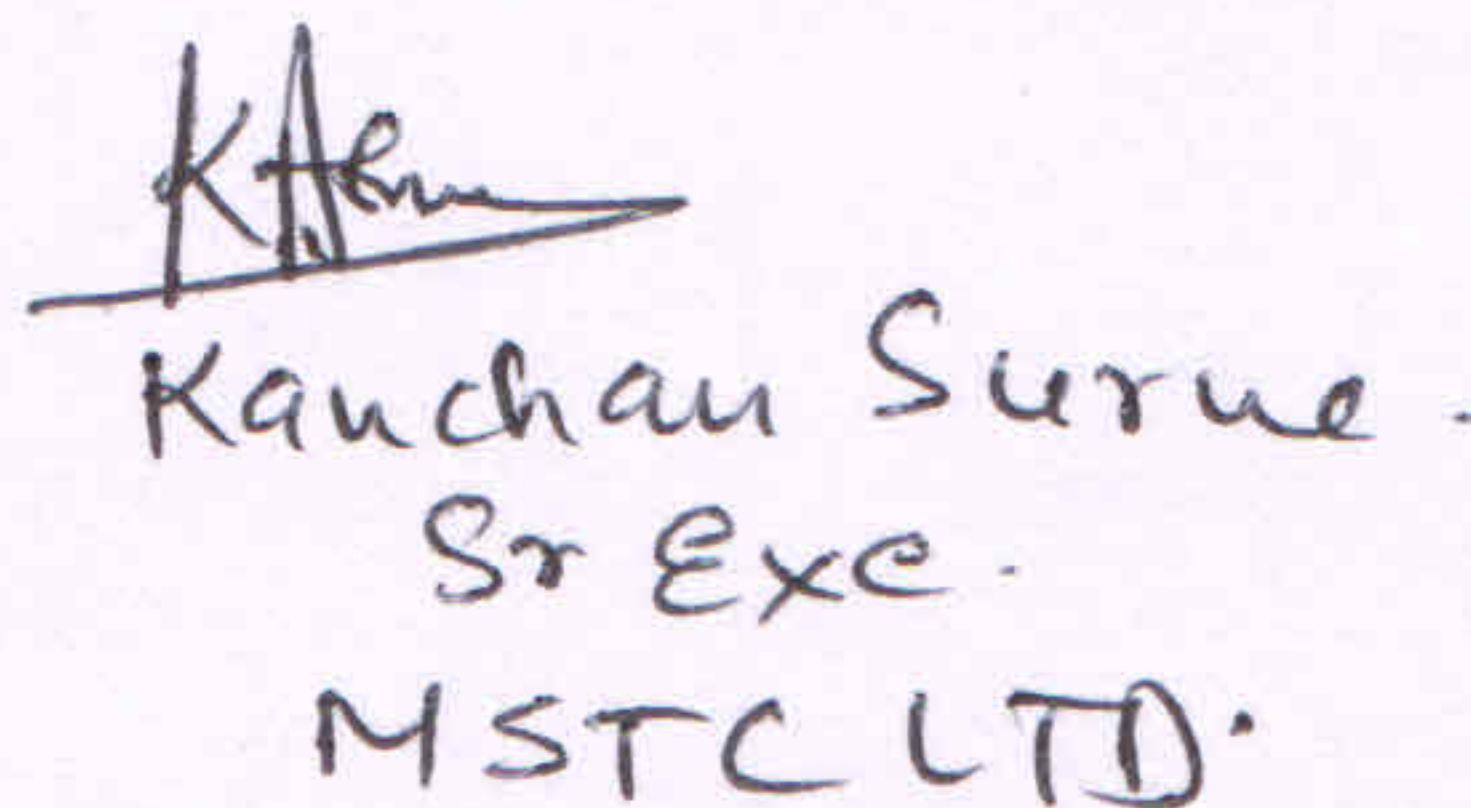 Kanchan Surve.
Sr Exe.
MSTC LTD.